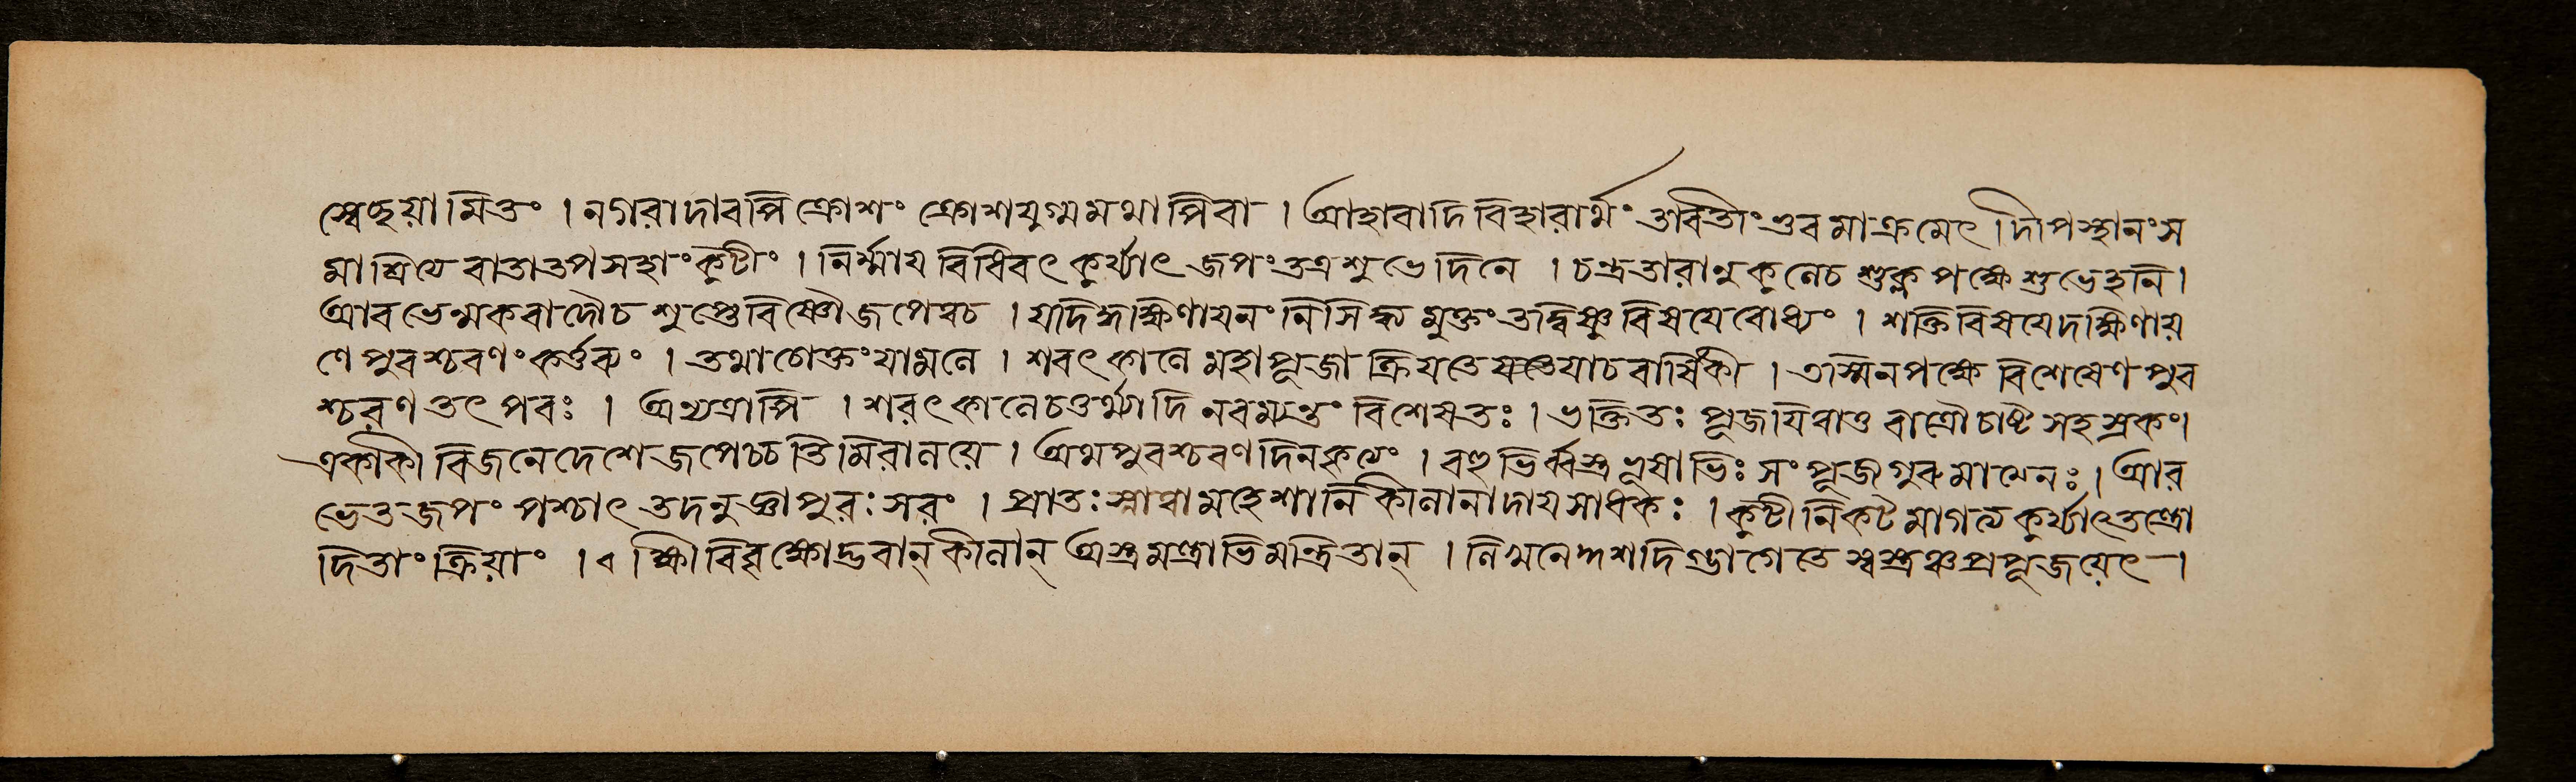 স্বেচ্ছয়ামিতং । নগরাদাবপি ক্রোশং ক্রোশযুগ্মমথাপিবা । আহাবাদি বিহারার্থং তাবিতাং ভুবমাক্রমেৎ । দিপস্থানং স
মাশ্রিযে বাতাতপসহাং কুটীং । নির্ম্মায বিধিবৎ কুর্য্যাৎ জপং তত্র শুভে দিনে । চন্দ্রতারানুকুলেচ শুক্লপক্ষে শুভেহনি ।
আবভেন্মকবাদৌচ শুপ্তেবিষ্ণৌ জপেন্নচ । যদি দ্দক্ষিণাযনং নিসিদ্ধ মুক্তং তদ্বিষ্ণুবিসযে বোধ্যং । শক্তিবিসযে দক্ষিণায়
ণে পুবশ্চবণং কর্ত্তব্যং । তথাচোক্তং যামলে । শবৎকালে মহাপূজা ক্রিযতে যাচবার্ষিকী । তস্মিনপক্ষে বিশেষেণ পুব
শ্চরণতৎপবঃ । অন্যত্রাপি । শরৎকালেচতুর্থ্যাদি নবম্যন্তং বিশেষতঃ । ভক্তিতঃ পূজযিত্বাতু বাত্রৌ চাষ্ট সহস্রকং।
একাকী বিজনেদেশে জপেচ্চ তিমিরালয়ে । অথপুবশ্চবণদিনকৃত্যং । বহুভির্ব্বস্ত্রভূষাভিঃ সংপূজ্য গুৰুমাত্মনঃ । আর
ভেতজপং পশ্চাৎ তদনুজ্ঞাপুরঃসরং । প্রাতঃস্নাত্বামহেশানি কীলানাদায সাধকঃ । কুটীনিকটমাগত্য কুর্য্যাৎতন্ত্রো
দিতাং ক্রিয়াং । ক্ষীরিবৃক্ষোদ্ভবান্ কীলান্ অস্ত্রমন্ত্রাভিমন্ত্রিতান্ । নিখনেদ্দশদিগ্ভাগে তেস্বস্ত্রঞ্চ প্রপূজয়েৎ ।